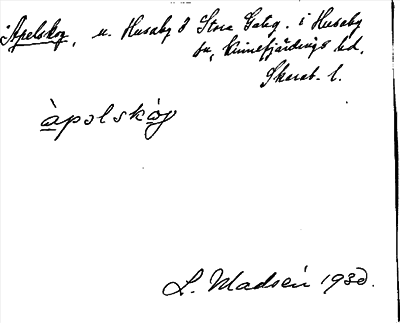 Apelskog, u. Husaby 8 Stora Gabg. i Husaby
sn, Kinnefjärdings hd.
Skarab. l.
àpolskóg
L. Madsén 1930.